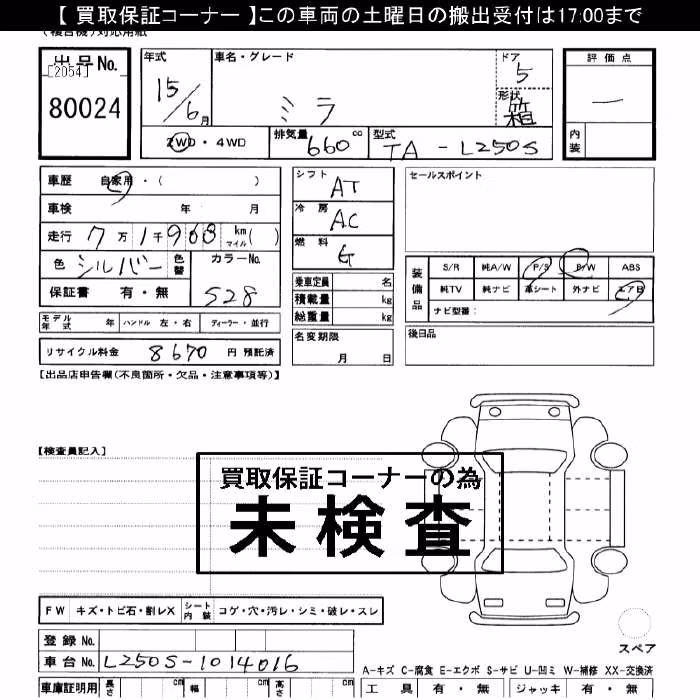 【 買取保証コーナー 】この車両の土曜日の搬出受付は17:00まで
(複合機)対応用紙
出品No.
[2054]
80024
年式
15/6月
車名・グレード
ミラ
ドア
5
形状
箱
評価点
—
内装
2WD・4WD
排気量 660 cc
型式 TA-L250S
車歴 自家用・( )
車検 年 月
走行 7万1千968 km マイル( )
色 シルバー 色替
カラーNo.
528
保証書 有・無
シフト AT
冷房 AC
燃料 G
乗車定員 名
積載量 kg
総重量 kg
セールスポイント
装備品
S/R 純A/W P/S P/W ABS
純TV 純ナビ 革シート 外ナビ エアB
ナビ型番:
モデル年式 年 ハンドル 左・右 ディーラー・並行
名変期限
月 日
後日品
リサイクル料金 8670 円 預託済
【出品店申告欄(不良箇所・欠品・注意事項等)】
【検査員記入】
買取保証コーナーの為
未検査
FW キズ・トビ石・割レX シート内装 コゲ・穴・汚レ・シミ・破レ・スレ
登録No.
車台No. L250S-1014016
スペア
A-キズ C-腐食 E-エクボ S-サビ U-凹ミ W-補修 XX-交換済
車庫証明用 長さ cm 幅 cm 高さ cm
工具 有・無 ジャッキ 有・無